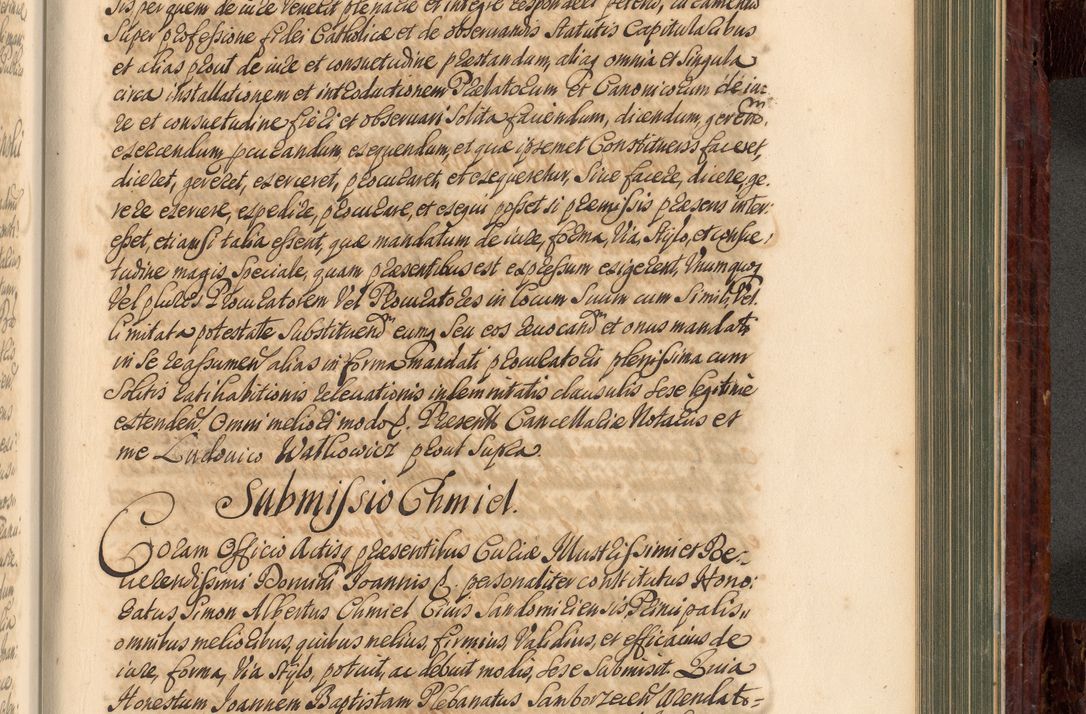 Sis per quem de iure venerit plenarie et integre respondere petend, iuramenta
Super professione fidei Catholicæ et de observandis Statutis Capitularibus
et alias prout de iure et consuetudine præstandum, aliaq omnia et Singula
circa installationem et introductionem Prælatorum et Canonicorum de iu-
re et consuetudine fieri et observari Solita faciendum, dicendum, gerend,
exercendum procurandum exequendum, et quæ ipsemet Constituens faceret,
diceret, gereret, exerceret, procuraret, et exequeretur, Sive facere, dicere, ge-
rere exercere, expedire, procurare, et exequi posset si præmissis præsens inter-
esset, etiamsi talia essent, quæ mandatum de iure, forma, Via, Stylo, et consue-
tudine magis Speciale, quam præsentibus est expressum exigerent, Unumquoq
Vel plures Procuratorem Vel Procuratores in locum Suum cum Simili, Vel
limitata potestate Substituend eumq Seu eos revocand et onus mandati
in se reassumen alias in forma mandati procuratorii plenissima cum
Solitis ratihabitionis relevationis indemnitatis clausulis Sese legitime
extenden. Omni meliori modo &. Præsent Cancellariæ Notarius et
me Ludovico Watkowicz prout Supra.
Submissio Chmiel.
Coram Officio Actisq præsentibus Curiæ Illustrissimi et Re-
verendissimi Domini Joannis &. personaliter constitutus Hono-
ratus Simon Albertus Chmiel Civis Sandomiriensis Principalis,
omnibus melioribus, quibus melius, firmius, Validius, et efficacius de
iure, forma, Via Stylo, potuit, ac debuit modis, Sese Submisit. Quia
Honestum Joannem Baptistam Plebanatus Samborzecen Arendato-